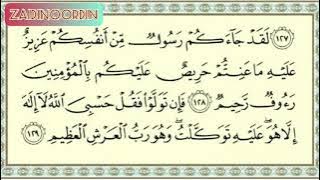 ZADINOORDIN
١٢٧ لَقَدْ جَآءَكُمْ رَسُولٌ مِّنْ أَنفُسِكُمْ عَزِيزٌ
عَلَيْهِ مَا عَنِتُّمْ حَرِيصٌ عَلَيْكُم بِٱلْمُؤْمِنِينَ
رَءُوفٌ رَّحِيمٌ ١٢٨ فَإِن تَوَلَّوْا۟ فَقُلْ حَسْبِىَ ٱللَّهُ لَآ إِلَٰهَ
إِلَّا هُوَ ۖ عَلَيْهِ تَوَكَّلْتُ ۖ وَهُوَ رَبُّ ٱلْعَرْشِ ٱلْعَظِيمِ ١٢٩